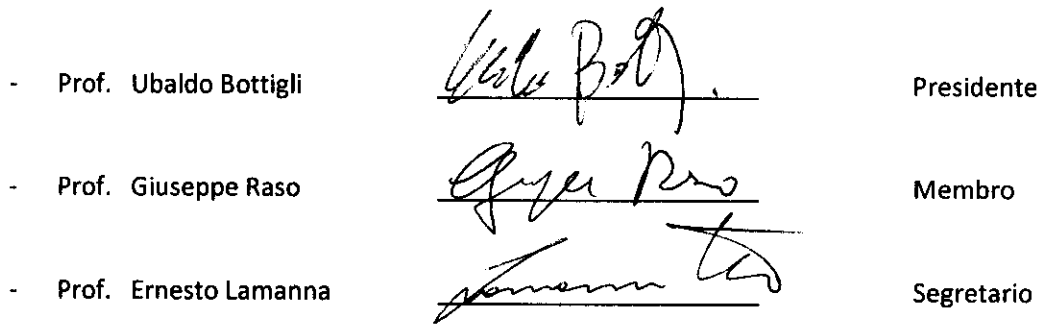 - Prof. Ubaldo Bottigli Presidente
- Prof. Giuseppe Raso Membro
- Prof. Ernesto Lamanna Segretario